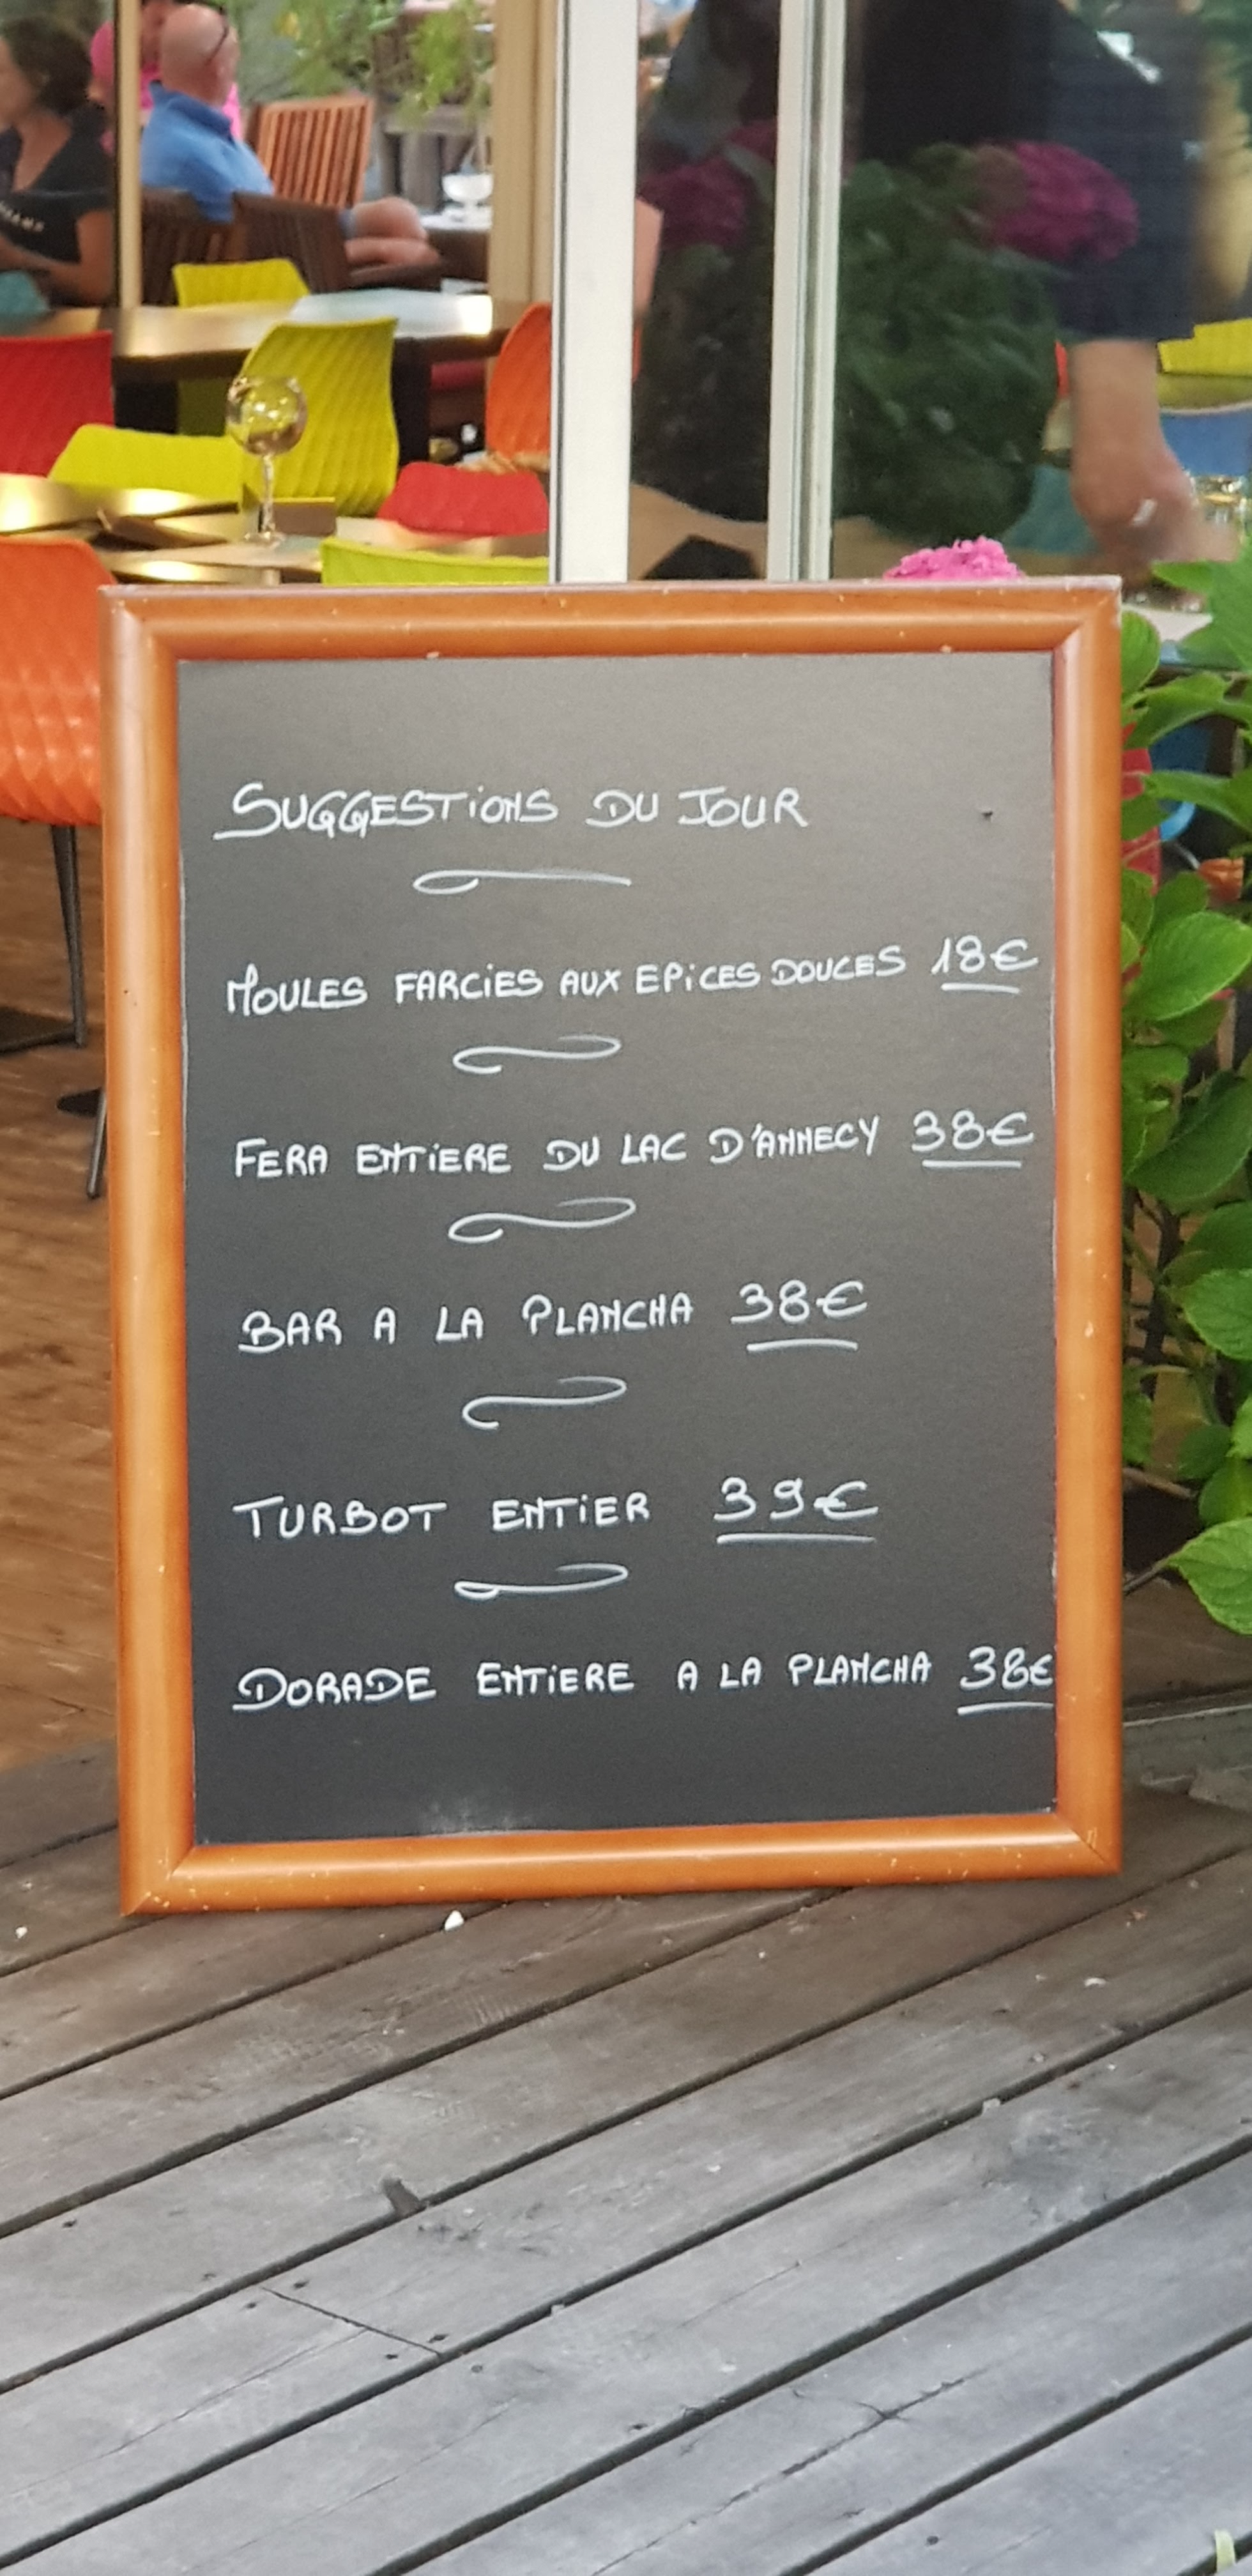 SUGGESTIONS DU JOUR
MOULES FARCIES AUX EPICES DOUCES 18€
FERA ENTIERE DU LAC D'ANNECY 38€
BAR A LA PLANCHA 38€
TURBOT ENTIER 39€
DORADE ENTIERE A LA PLANCHA 38€